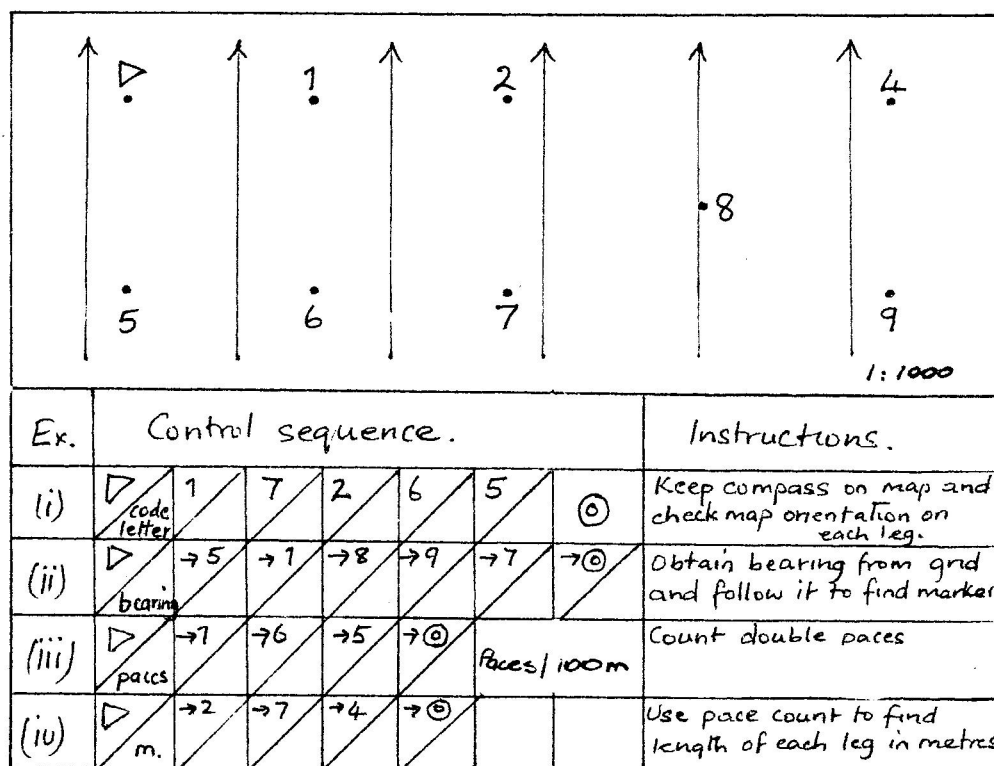 1 2 4
8
5 6 7 9
1:1000
Ex. Control sequence. Instructions.
(i) code letter 1 7 2 6 5 Keep compass on map and
check map orientation on
each leg.
(ii) bearing →5 →1 →8 →9 →7 → Obtain bearing from grid
and follow it to find marker
(iii) paces →1 →6 →5 → Paces/100m Count double paces
(iv) m. →2 →7 →4 → Use pace count to find
length of each leg in metres